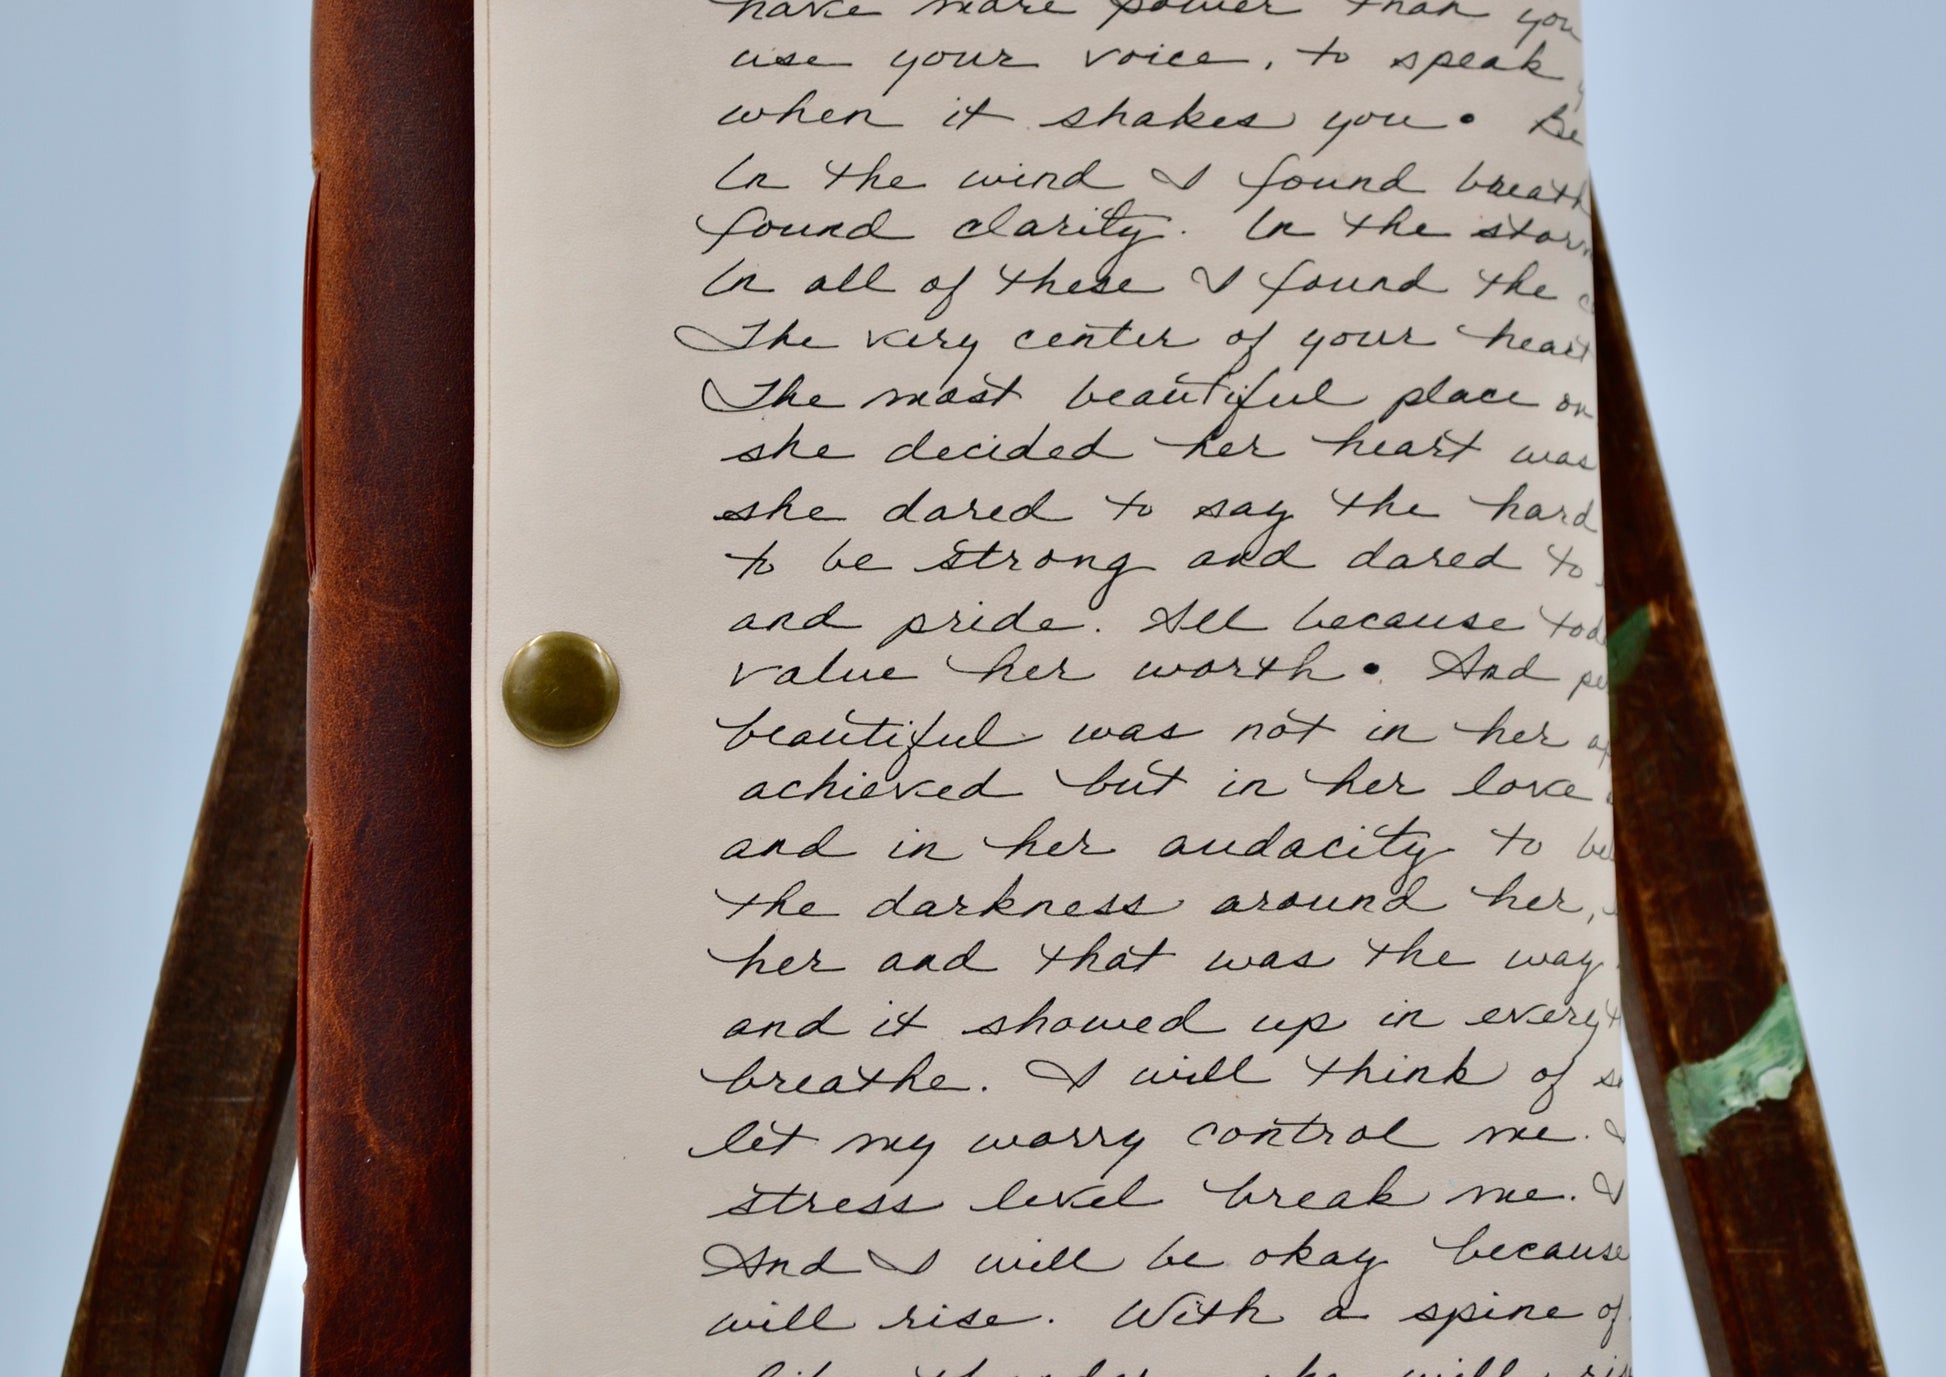 have more power than you
use your voice, to speak
when it shakes you. Be
In the wind I found breath
found clarity. In the storm
In all of these I found the
The very center of your heart
The most beautiful place on
she decided her heart was
she dared to say the hard
to be strong and dared to
and pride. All because
value her worth. And
beautiful was not in her
achieved but in her love
and in her audacity to
the darkness around her,
her and that was the way
and it showed up in every
breathe. I will think of
let my worry control me. I
stress level break me. I
And I will be okay because
will rise. With a spine of
like thunder she will